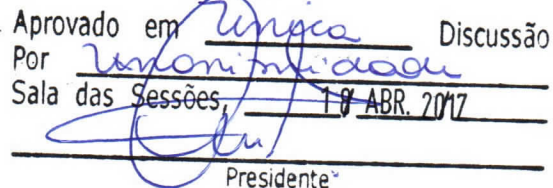 Aprovado em Única Discussão
Por Unanimidade
Sala das Sessões, 10 ABR. 2017
Presidente